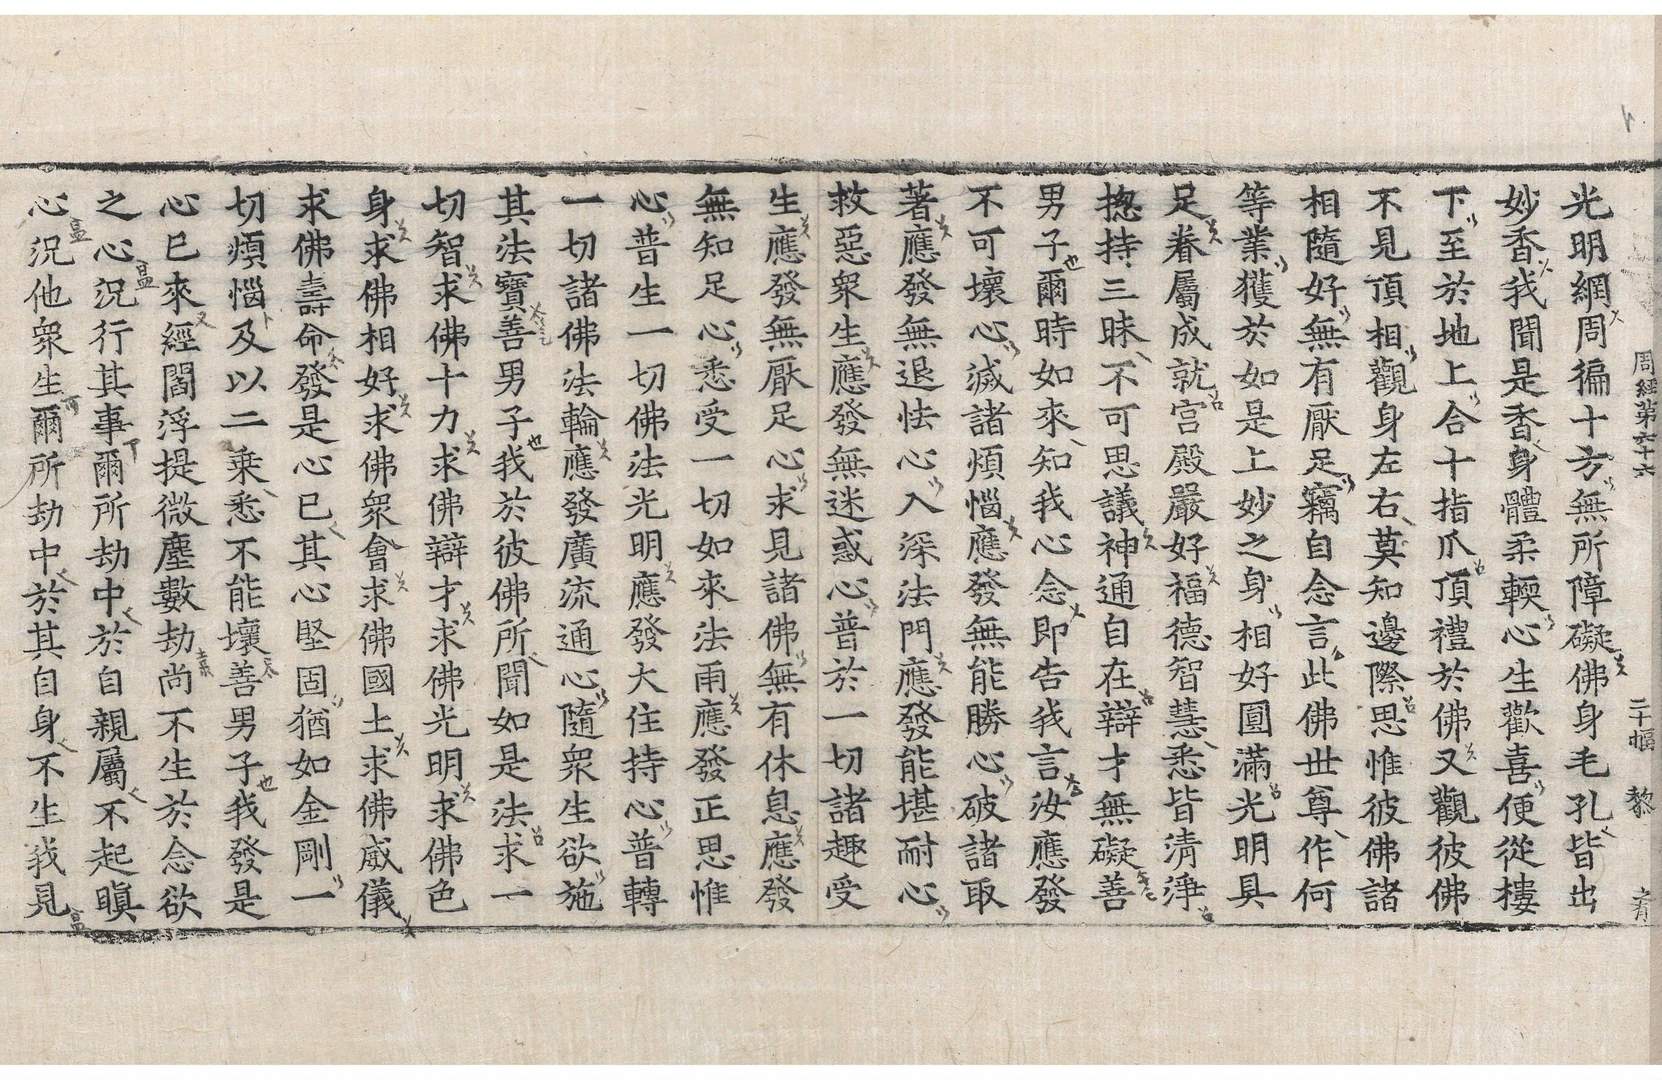 周經第六十六 二十幅 黎
光明網周徧十方無所障礙佛身毛孔皆出
妙香我聞是香身體柔輭心生歡喜便從樓
下至於地上合十指爪頂禮於佛又觀彼佛
不見頂相觀身左右莫知邊際思惟彼佛諸
相隨好無有厭足竊自念言此佛世尊作何
等業獲於如是上妙之身相好圓滿光明具
足眷屬成就宮殿嚴好福德智慧悉皆清淨
捴持三昧不可思議神通自在辯才無礙善
男子爾時如來知我心念即告我言汝應發
不可壞心滅諸煩惱應發無能勝心破諸取
著應發無退怯心入深法門應發能堪耐心
救惡衆生應發無迷惑心普於一切諸趣受
生應發無厭足心求見諸佛無有休息應發
無知足心悉受一切如來法雨應發正思惟
心普生一切佛法光明應發大住持心普轉
一切諸佛法輪應發廣流通心隨衆生欲施
其法寶善男子我於彼佛所聞如是法求一
切智求佛十力求佛辯才求佛光明求佛色
身求佛相好求佛衆會求佛國土求佛威儀
求佛壽命發是心已其心堅固猶如金剛一
切煩惱及以二乘悉不能壞善男子我發是
心已來經閻浮提微塵數劫尚不生於念欲
之心況行其事爾所劫中於自親屬不起瞋
心況他衆生爾所劫中於其自身不生我見